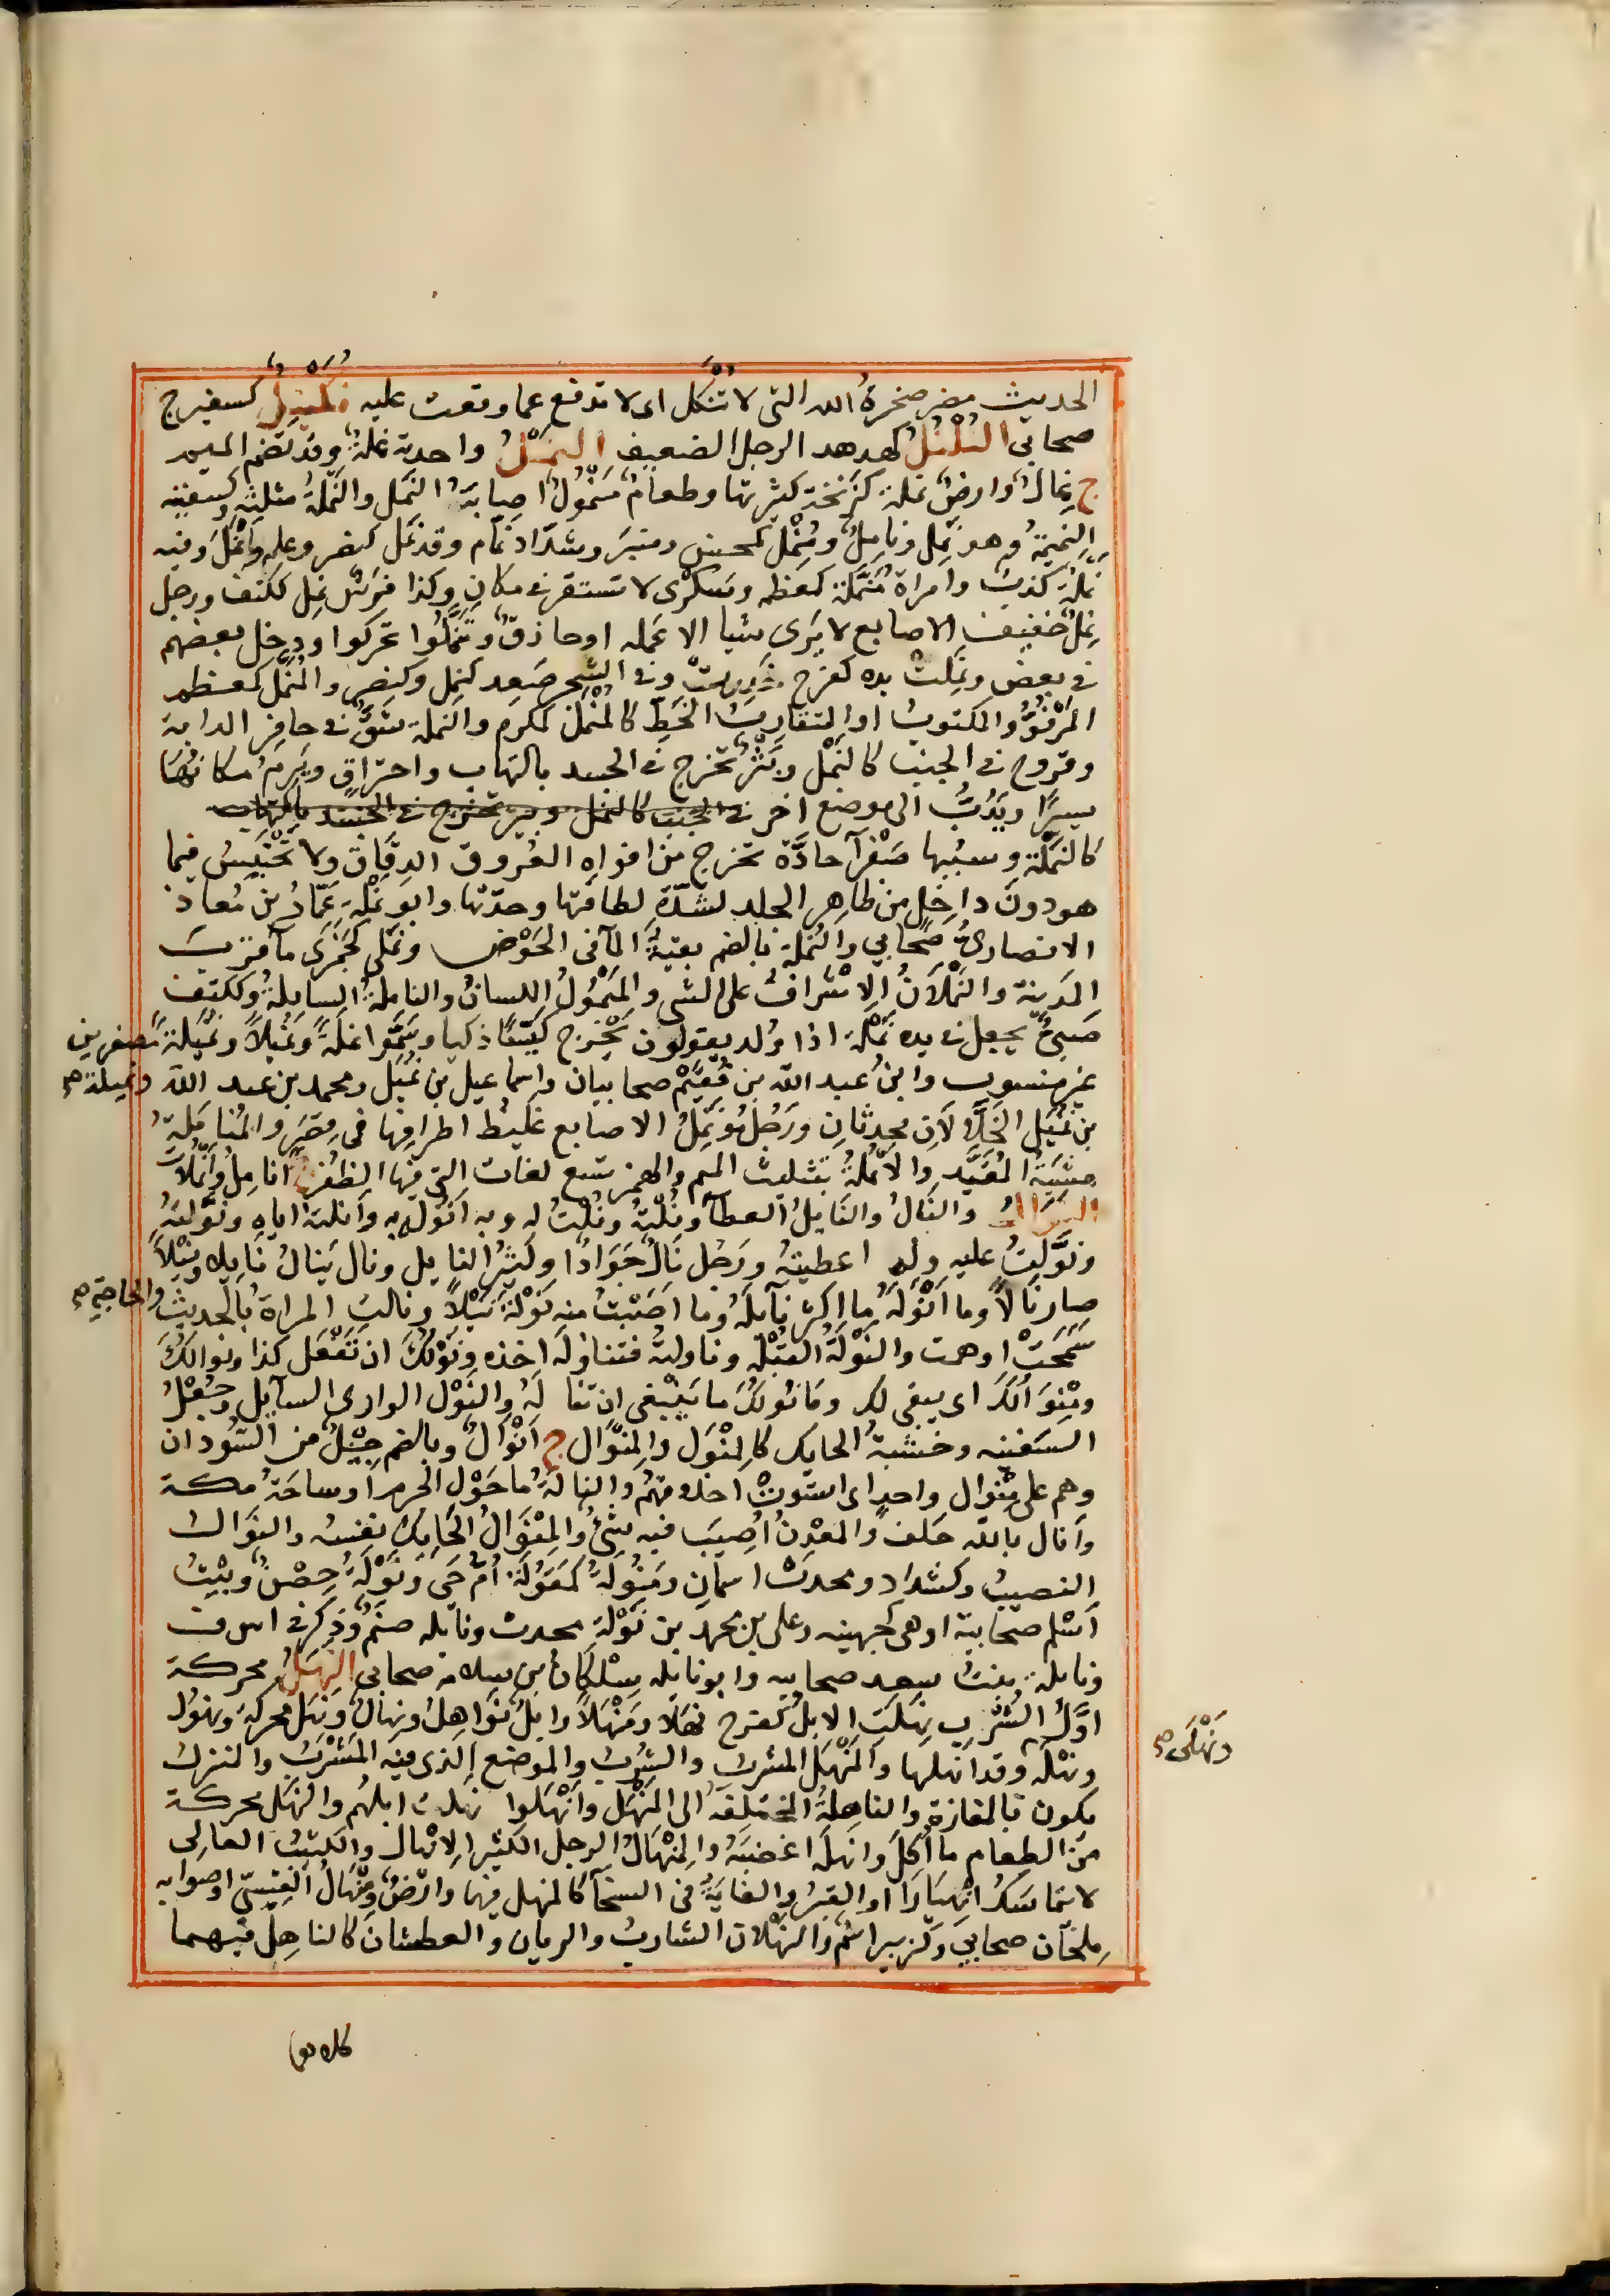 الحديث مضر صخرةُ الله التى لا تُنْكَل اى لا تدفع عما وقعت عليه نُمَيْل كسفيرج
صحابى النُلْنُلُ كهدهد الرجل الضعيف النَمْلُ واحدته نملةٌ وقد تضم الميم
ج نِمَالٌ وارضٌ نملة كزنخة كثيرتها وطعامٌ مَنْمُولٌ اصابَهُ النَمل والنَّملةُ مثلثة وكسفينه
النميمةُ وهو نَمِل ونامِلٌ ومُنْمِلٌ كمحسن ومنبر وشدّاد نَمّام وقد نَمَل كنصر وعلم وانْمَلَ وفيه
نَملة كذب وامراة مُنَمَّلة كمعظمه وسَكْرى لا تستقر فى مكانٍ وكذا فرسٌ نَمِل ككتف ورجل
نَمِلٌ خفيف الاصابع لا يَرَى شيا الا عمله او حاذقٌ وتَنَمَّلُوا تحركوا ودخل بعضهم
فى بعض ونَمِلَتْ يده كفرح خَدِرَتْ وفى الشجر صَعِد كنَمِل وكنصر والمُنَمَّل كمعظم
المَرْفُوُّ والمكتوبُ او المتقارِبُ الخطِّ كالمُنْمَل كمكرم والنملة شَقٌّ فى حافر الدابة
وقروح فى الجنب كالنَمْل وبَثْرٌ تخرج فى الجسد بالتهاب واحتراقٍ ويَرِمُ مكانُهَا
يسيرًا ويَدُبُّ الى موضع اخر فى الجنب كالنمل وبثر تخرج فى الجسد بالتهاب
كالنَمْلَة وسببها صَفْرآ حادَّة تخرج من افواهِ العُروق الدِقَاق ولا تحتَبِسُ فيما
هو دونَ داخِلٍ من ظاهِر الجلد لشدّة لطافتها وحدّتها وابو نَمْلَةَ عَمّارُ بن مُعاذ
الانصارىّ صَحابى والنُملة بالضم بقيةُ المآ فى الحَوْض ونَمَلى كجَمَزَى مآ قربَ
المدينة والنَمْلَانُ الاشرافُ على الشى والمَنْمُولُ اللسانُ والناملةُ السابلةُ وككتِف
صَبِىٌّ يجعل فى يده نَمْلَة اذا وُلد يقولون يَخْرج كَيّسًا ذكيا وسَمَّوا نملةً ونُمَيْلاً ونُمَيلة مُصغرين
غير منسوب وابنُ عبد الله بن فُقَيْمٍ صحابيان واسماعيل بن نُمَيْل ومحمد بن عبد الله ونُميلة صح
بن نُمَيْل الخَلَّالانِ محدثانِ ورَجُلٌ مُؤنْمَلُ الاصابع غليظ اطرافِها فى قِصَرٍ والمُنامَلَةُ
مِشيَةُ المُقَيَّد والانملةُ بتثليث الميم والهمز تسع لغات التى فيها الظُفْرُ ج انامِلُ وانملات
النَوَالُ والنَالُ والنَايِلُ العطآ ونُلْتُهُ ونُلْتُ له وبه اَنُولُه به وانلته اياه ونَوَّلتُه
ونَوَّلتُ عليه وله اعطيتُه ورَجُل نَالٌ جَوَادٌ او كثيرُ النايل ونال يَنالُ نايلاً ونيْلاً
صار نَالاً وما اَنْوَلَهُ ما اكثر نآيلَهُ وما اَصَبْتُ منه نَوْلَةً نَيْلاً ونالت المراةُ بالحديث والحاجة صح
سَمَحَتْ او همت والنَوْلَةُ القُبْلة وناولته فتناوَلَه اخذه ونَوْلُكَ ان تَفْعَل كذا ونوالُكَ
ومِنْوَالُكَ اى ينبغى لك وما نَولُكَ ما يَنْبَغى ان تنالَهُ والنَوْل الوادى السآيل وجُعْلُ
السَفينه وخشبةُ الحايك كالمِنْوَل والمِنْوَال ج اَنْوَالٌ وبالضم جِيْلٌ من السُّودان
وهم على مِنْوال واحدٍ اى استوتْ اخلاقهُم والنالَةُ ما حَوْل الحرم او ساحَةُ مكة
وانال بالله حَلفَ والمعْدِنُ اُصِيبَ فيه شىٌ والمِنْوَالُ الحَايكُ نفسُه والنَوَال
النصيبُ وكشدّاد ومحدث اسمان ومَنُولَةُ كمَقُولَة اُمُّ حَىّ ونَوْلَةُ حِصْنٌ وبنْتُ
اَسْلم صحابية او هى كجهينه وعلى بن محمد بن نَوْلة محدث ونايله صنمٌ وذِكر فى اس ف
ونايلة بنت سعد صحابيه وابو نايله سِلْكانُ بن سلامه صحابى النَهَلُ محركة
اوّلُ الشُرْب نهلَتِ الابلُ كفرح نَهَلاً ومَنْهَلاً وابلٌ نَوَاهِلُ ونِهالٌ ونهل محركه ونُهُولٌ
ونَهْلَى صح
ونهلة وقد انهلها والمَنْهَل المشربُ والشُرْبُ والموضع الذى فيه المَشْرَبُ والمنزل
يكون بالمفازة والناهلةُ المختلفة الى المَنْهَل وانْهَلوا نهلت ابلُهُم والنَهَل محركة
من الطعام ما اُكِلَ وانهلَه اغضبَهُ والمِنْهَالُ الرجل الكثير الانهال والكثيبُ العالى
لا يتماسَكُ انْهِيَارًا او القبرُ والغايَةُ فى السخآ كالمنهل فيها وارضٌ ومِنْهَالُ القَيْسىّ او صوابه
مِلْحَان صحابىّ وكزبير اسْمٌ والنَهْلان الشاربُ والريان والعطشان كالناهِل فيهما